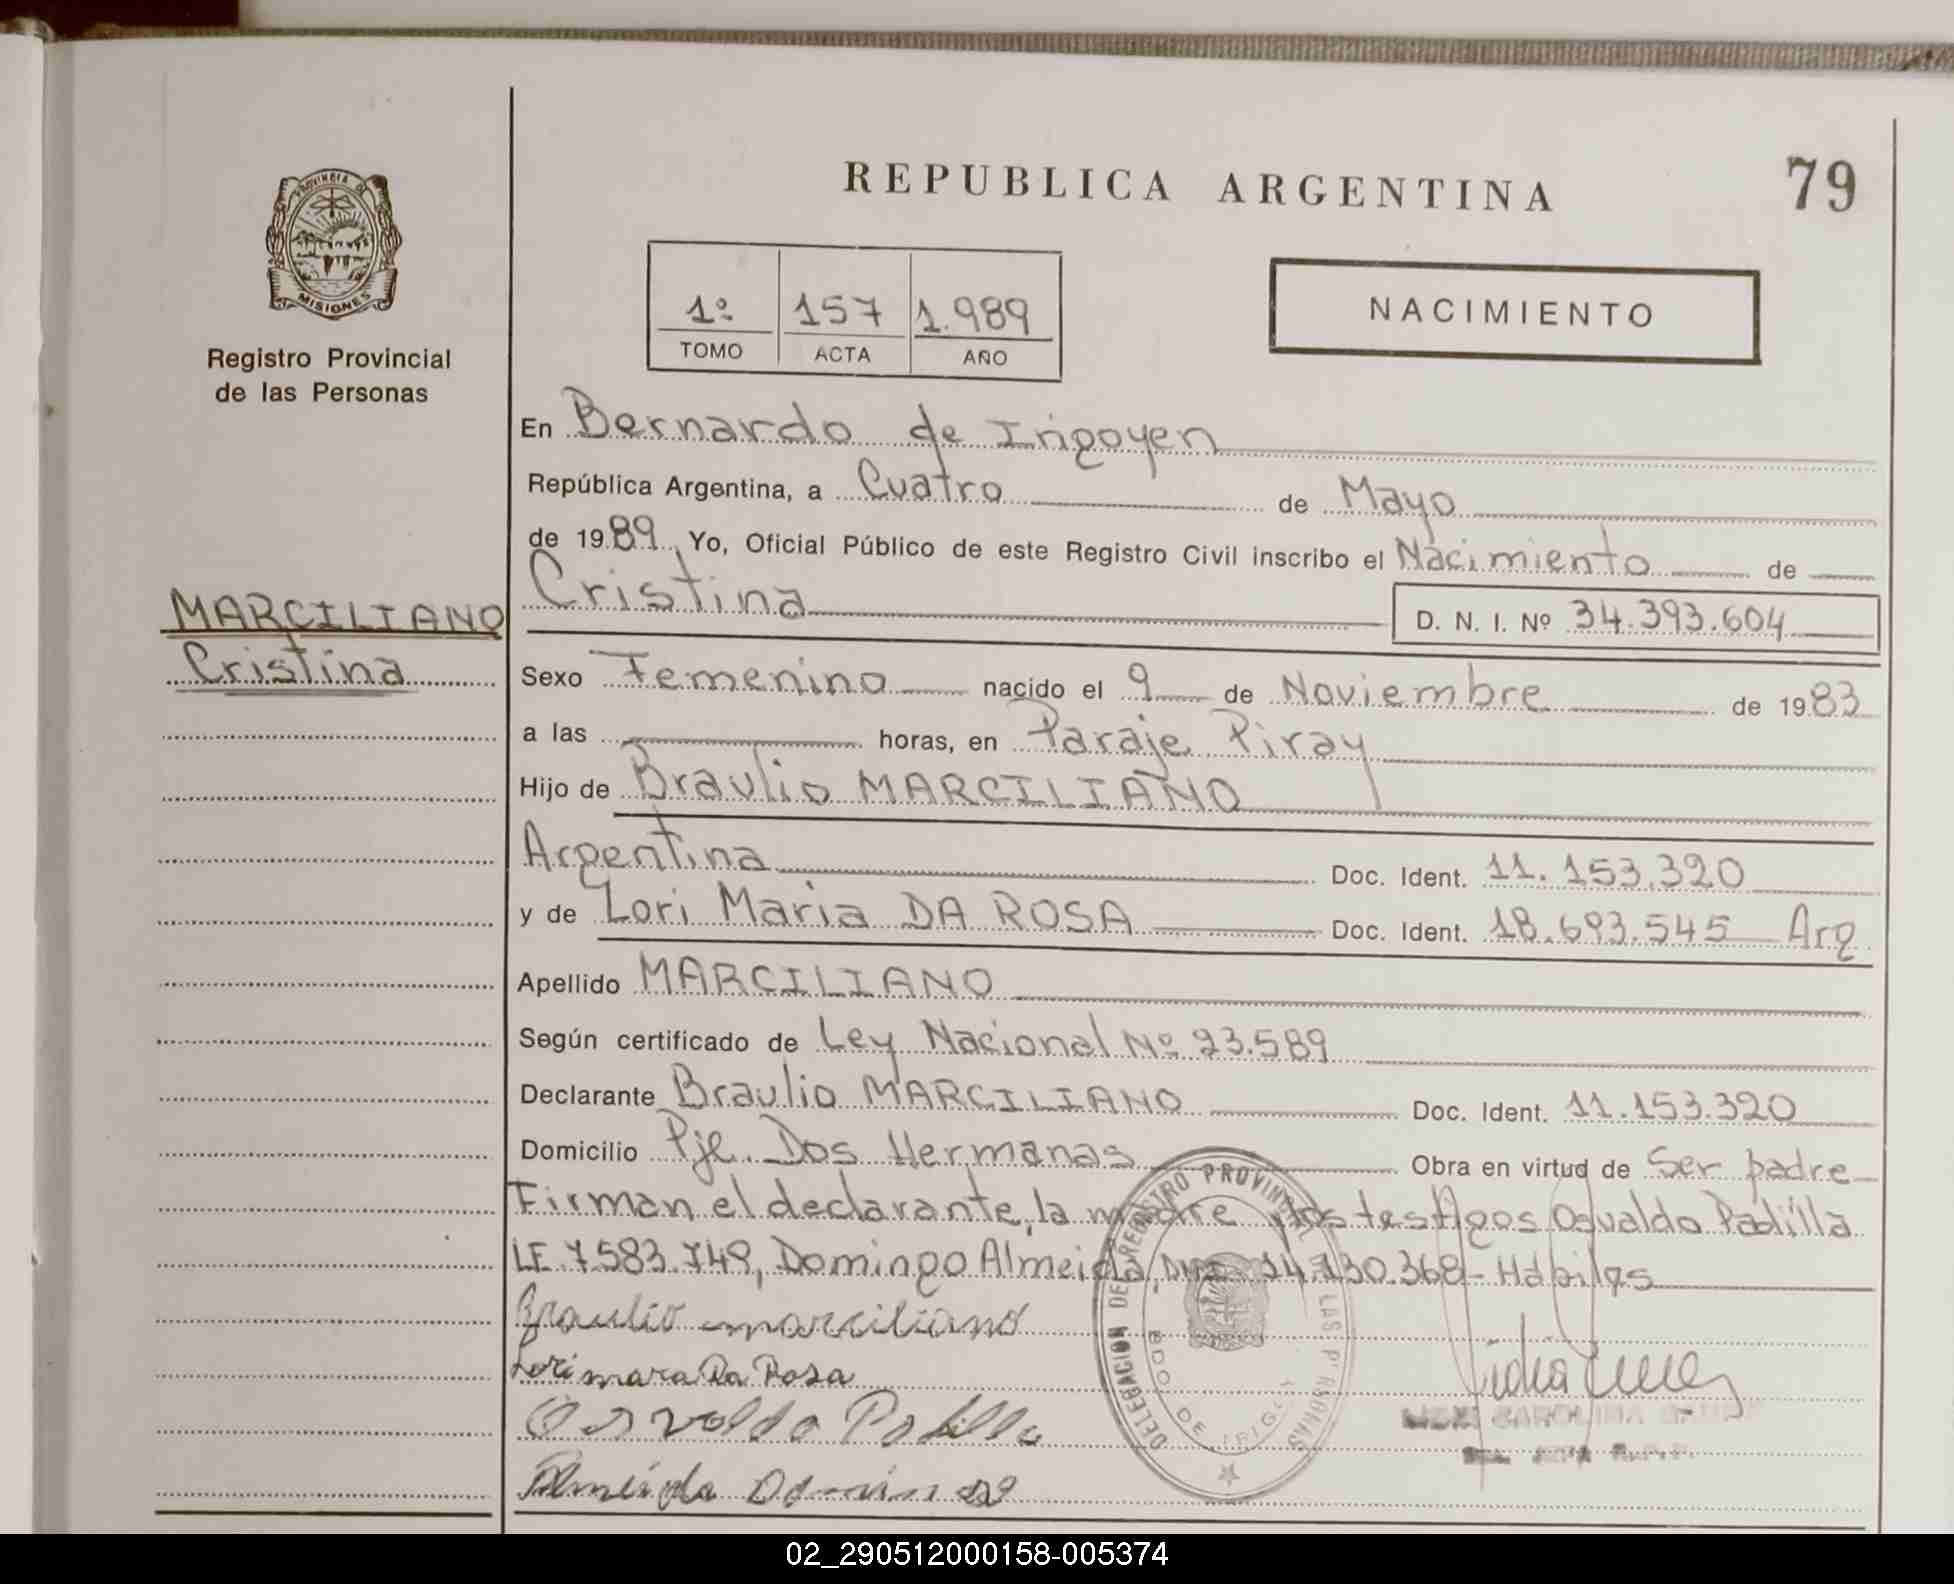 REPUBLICA ARGENTINA
79
PROVINCIA DE
MISIONES
Registro Provincial
de las Personas
1º 157 1.989
TOMO ACTA AÑO
NACIMIENTO
En Bernardo de Irigoyen
República Argentina, a Cuatro de Mayo
de 1989 Yo, Oficial Público de este Registro Civil inscribo el Nacimiento de
Cristina D. N. I. Nº 34.393.604
MARCILIANO
Cristina
Sexo Femenino nacido el 9 de Noviembre de 1983
a las horas, en Paraje Piray
Hijo de Braulio MARCILIANO
Argentina Doc. Ident. 11.153.320
y de Lori Maria DA ROSA Doc. Ident. 18.693.545 Arg
Apellido MARCILIANO
Según certificado de Ley Nacional Nº 23.589
Declarante Braulio MARCILIANO Doc. Ident. 11.153.320
Domicilio Pje. Dos Hermanas Obra en virtud de Ser padre
Firman el declarante, la madre y los testigos Osvaldo Padilla
LE 7.583.749, Domingo Almeida, DNI 14.130.368 - Hábiles
Braulio marciliano
Lori mara Da Rosa
Osvaldo Padilla
Almeida Domingo
DELEGACION DE REGISTRO PROVINCIAL DE LAS PERSONAS
BDO. DE IRIGOY
CAROLINA
02_290512000158-005374